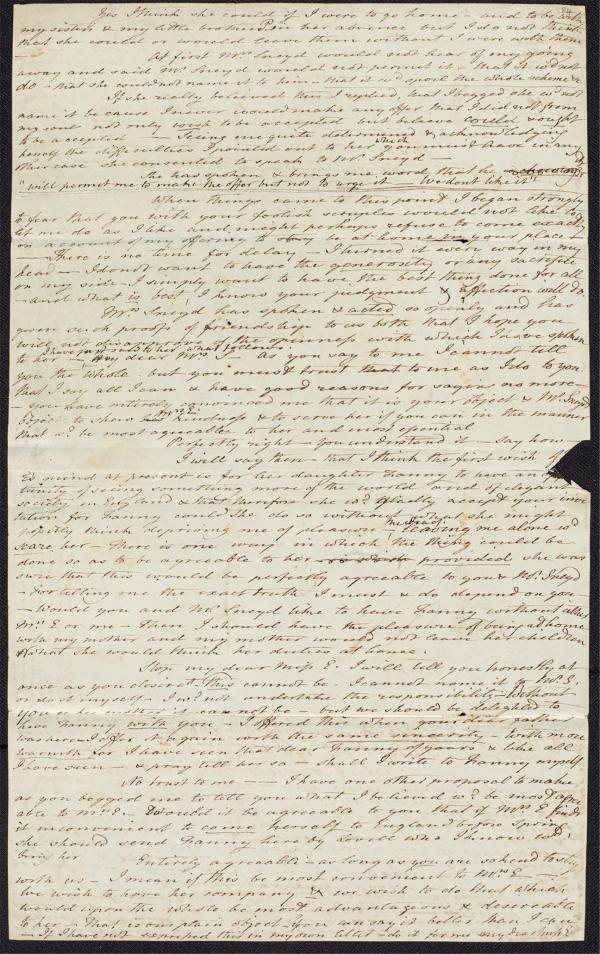 Yes I think she could if I were to go home – and to be with
my sisters & my little brothers in her absence but I do not think
that she could or would leave them without I were with them
– At first Mrs Sneyd would not hear of my going
away and said Mr Sneyd would not permit it – that it wd not
do – that she could not name it to him – that it wd spoil the whole scheme &
If she really believed this I replied, that I begged she wd not
name it because I never would make any offer that I did not from
my soul not only wish to be accepted but believe could & ought
to be accepted – Seeing me quite determined & acknowledging
herself the difficulties I pointed out to her which Mrs E must have in any
other case she consented to speak to Mr Sneyd –
She has spoken & brings me word that he
"will permit me to make the offer but not to urge it – We don't like it"
When things came to this point I began strongly
to fear that you with your foolish scruples would not like to
let me do as I like and might perhaps refuse to come exactly
on account of my offering to be at home in your place
– There is no time for delay – I turned it every way in my
head – I do not want to have the generosity or any sacrifice
on my side – I simply want to have the best thing done for all
– and what is best? I know your judgment & affection will do.
Mrs Sneyd has spoken & acted so openly and has
given such proofs of friendship to us both that I hope you
will not disapprove of the openness with which I have spoken
to her – I have just said to her what follows
My dear Mrs S – As you say to me I cannot tell
you the whole but you must trust that to me as I do to you
that I say all I can & have good reasons for saying no more –
– You have entirely convinced me that it is your object & Mr Sneyd's
object to shew Mrs E. kindness & to serve her if you can in the manner
that wd be most agreeable to her and most essential
Perfectly right – You understand it – say how –
I will say then – that I think the first wish of
E's mind at present is for her daughter Fanny to have an
tunity of seeing something more of the world and of elegant
society in England & that therefore she wd gladly accept your invi
tation for Fanny could she do so without what she might
possibly think depriving me of pleasure – leaving me alone wd
scare her – There is one way in which the thing could be
done so as to be agreeable to her provided she was
sure that this would be perfectly agreeable to you & Mr Sneyd
– For telling me the exact truth I must & do depend on you –
– Would you and Mr Sneyd like to have Fanny without either
Mrs E or me – Then I should have the pleasure of being at home
with my mother and my mother would not leave her children
& what she would think her duties at home.
Stop my dear Miss E. I will tell you honestly at
once as you desire it this cannot be. I cannot name it to Mr S.
or do it myself – I wd not undertake the responsibility – Without
you or Mrs E it cannot be – but we should be delighted to
have Fanny with you – I offered this when your dear father
was here – I offer it again with the same sincerity – with more
warmth for I have seen that dear Fanny of yours & like all
I have seen – & pray tell her so – shall I write to Fanny myself
No trust to me – I have one other proposal to make
as you begged me to tell you what I believed wd be most agree
able to Mrs E. Would it be agreeable to you that if Mrs E finds
it inconvenient to come herself to England before Spring
she should send Fanny here by Lovell who I know wd
bring her
Entirely agreeable – as long as you are so kind to stay
with us – I mean if this be most convenient to Mrs E –
We wish to have her company & we wish to do that which
would upon the whole be most advantageous & desirable
to her – That is our plain object – You can say it better than I can
– If I have not expressed this in my own letter – do it for me my dear Miss E